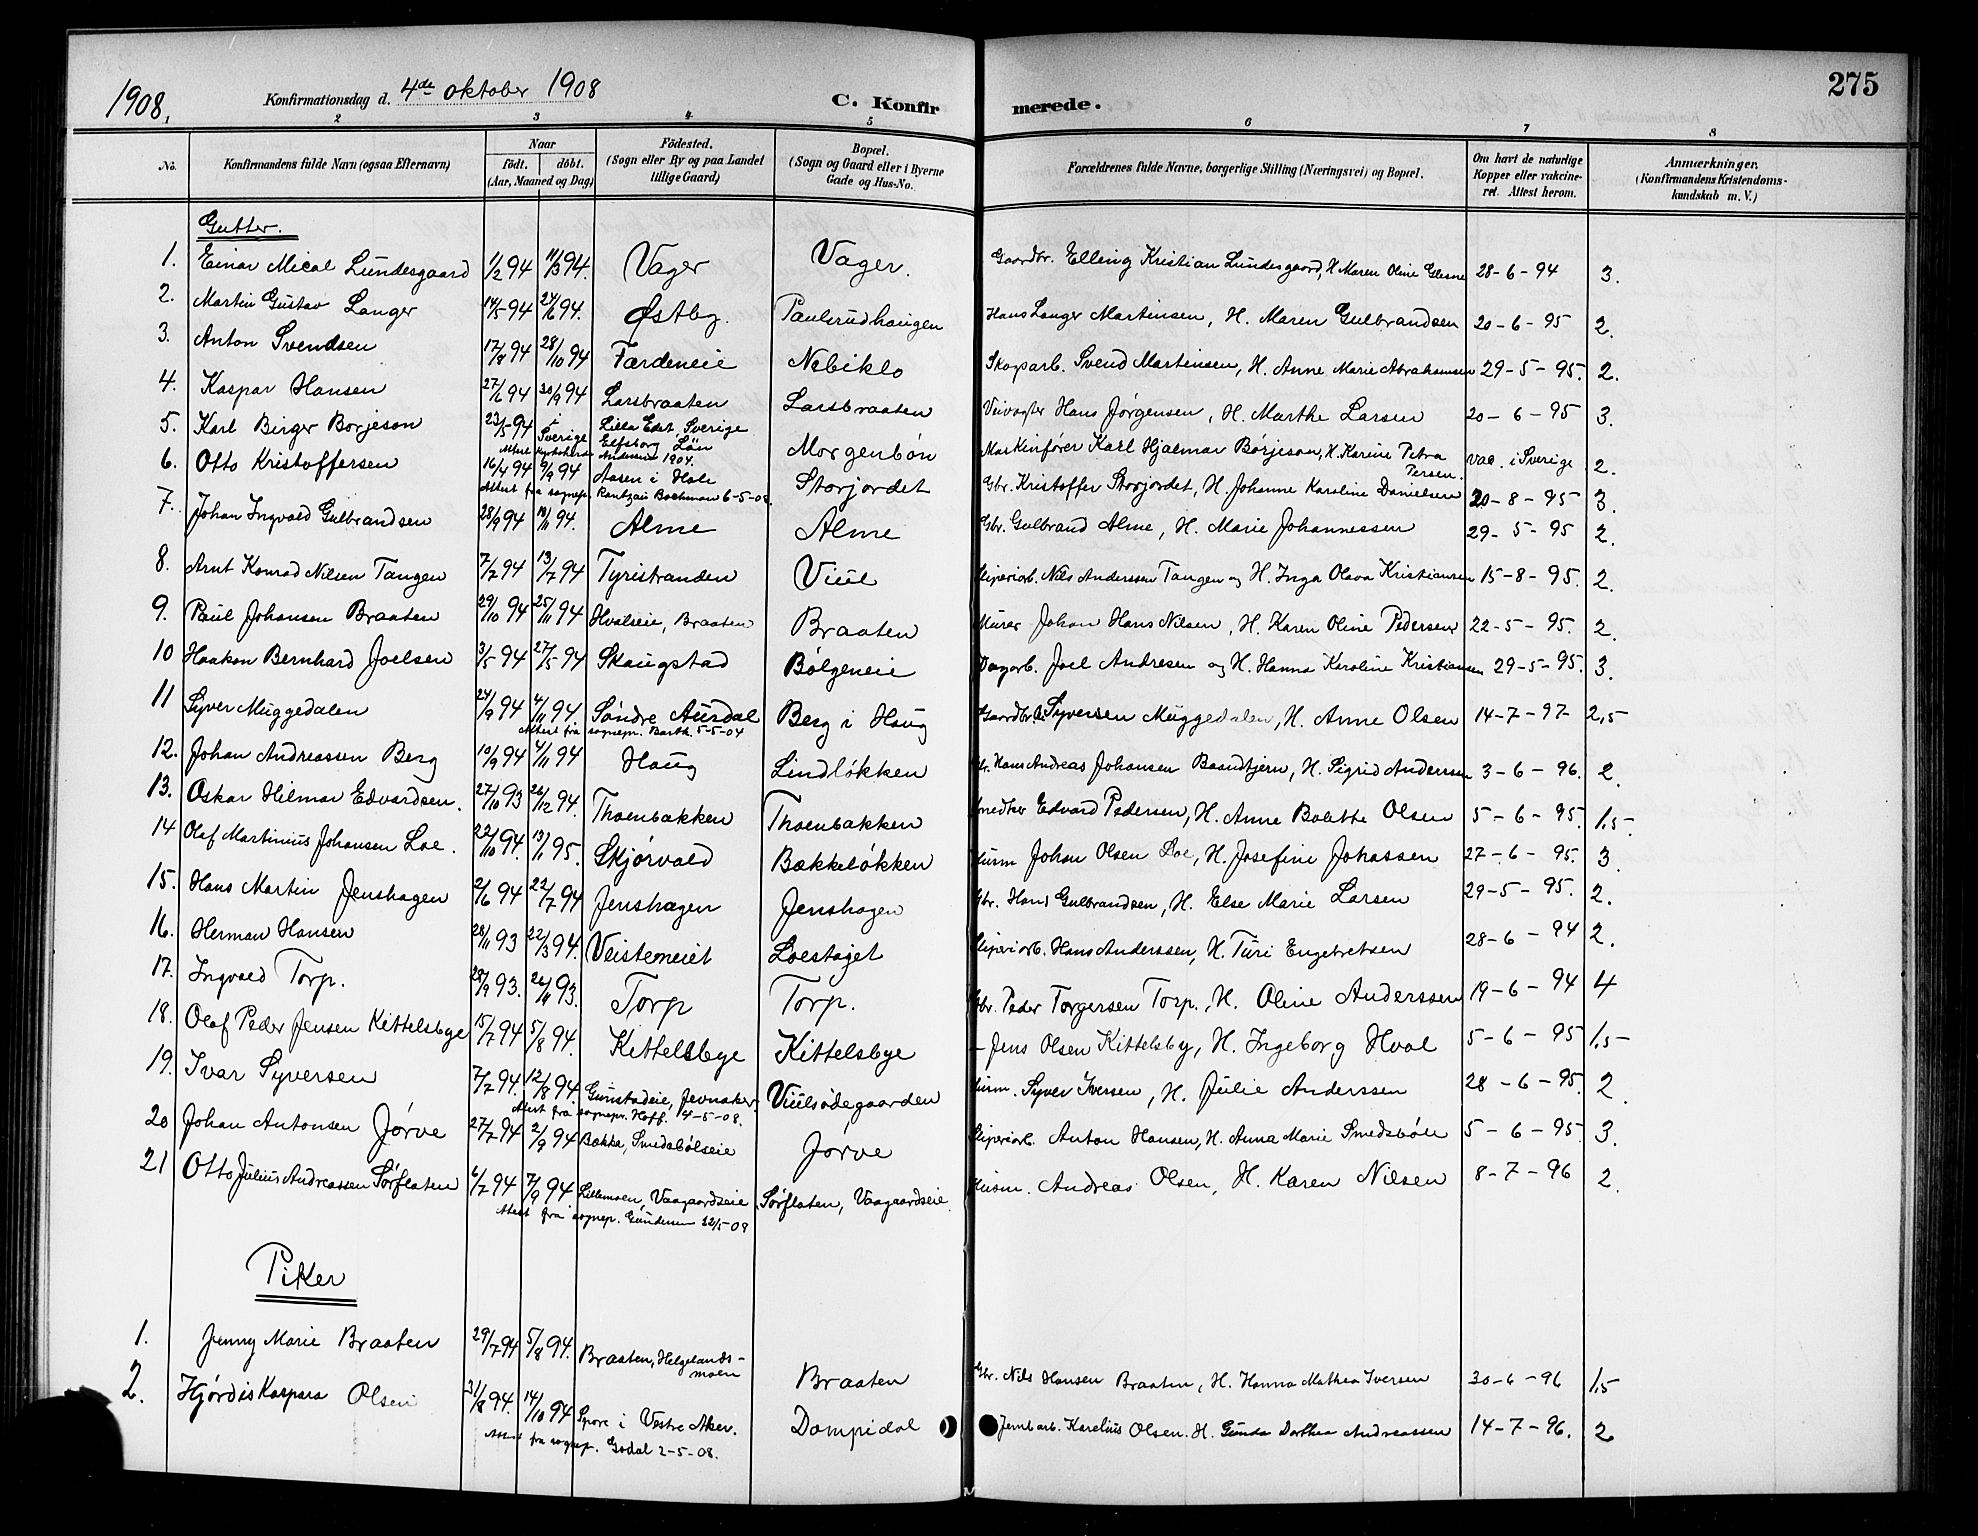 1908.
Konfirmationsdag d. 4de oktober 1908
C. Konfir merede.
275
2 3 4 5 6 7 8
No.
Konfirmandens fulde Navn (ogsaa Efternavn)
Naar
födt. döbt.
(Aar, Maaned og Dag)
Födested.
(Sogn eller By og paa Landet
tillige Gaard)
Bopæl.
(Sogn og Gaard eller i Byerne
Gade og Hus-No.
Forældrenes fulde Navne, borgerlige Stilling (Næringsvei) og Bopæl.
Om havt de naturlige
Kopper eller vakcine-
ret. Attest herom.
Anmærkninger.
(Konfirmandens Kristendoms-
kundskab m. V.)
Gutter.
1. Einar Mical Lundesgaard 1/2 94 11/3 94. Vager Vager. Gaardbr. Elling Kristian Lundesgaard, H. Maren Oline Glesne 28-6-94 3.
2. Martin Gustav Langer 14/5 94 24/6 94. Østby. Paulsrudhaugen Hans Langer Martinsen, H. Maren Gulbrandsen 20-6-95 2.
3. Anton Svendsen 17/8 94 28/10 94 Færdeneie Nebiklo Skogarb. Svend Martinsen, H. Anne Marie Abrahamsen 29-5-95. 2.
4. Kaspar Hansen 27/6 94 30/9 94 Larsbraaten Larsbraaten Veivogter Hans Jørgensen, H. Marthe Larsen 20-6-95 3.
5. Karl Birger Borjeson 23/5 94 i Sverige Lilla Edet Sverige Elfsborg Län Morgenbön Maskinfører Karl Hjalmar Börjeson, H. Karine Petra Persen. vac. i Sverige 2.
6. Otto Kristoffersen 16/4 94 9/9 94 Aasen i Hole Storjordet Gbr. Kristoffer Storjordet, H. Johanne Karoline Danielsen 20-8-95 3.
Attest fra sognepr. Rantzau Bochman 6-5-08.
7. Johan Ingvald Gulbrandsen 28/9 94 18/11 94. Alme Alme Gbr. Gulbrand Alme, H. Marie Johannessen 29-5-95 2.
8. Arnt Konrad Nilsen Tangen 7/2 94 13/7 94 Tyristranden Viul Sliperiarb. Nils Anderssen Tangen og H. Inga Olava Kristiansen 15-8-95. 2.
9. Paul Johansen Braaten 29/10 94 25/11 94 Hvalseie, Braaten Braaten Murer Johan Hans Nilsen, H. Karen Oline Pedersen 22-5-95. 2.
10 Haakon Bernhard Joelsen 3/5 94 27/5 94 Skaugstad Bölgeneie Dagarb. Joel Andresen og H. Hanna Karoline Kristiansen 29-5-95. 3.
11 Syver Muggedalen 24/9 94 4/11 94. Söndre Aurdal Berg i Haug Gaardbr. Syversen Muggedalen, H. Anne Olsen 14-7-97 2,5
Attest fra sognepr. Barth. 5-5-04
12. Johan Andreassen Berg 10/9 94 4/11 94 Haug Lindløkken Gbr. Hans Andreas Johansen Baandtjern, H. Sigrid Anderssen 3-6-96. 2.
13. Oskar Hilmar Edvardsen. 27/10 93 26/12 94. Thoenbakken Thoenbakken Smedker Edvard Pedersen, H. Anne Bolette Olsen 5-6-95. 1,5.
14 Olaf Martinius Johansen Loe. 22/10 94. 13/1 95. Skjörvold Bækkeløkken Husm Johan Olsen Loe, H. Josefine Johassen 27-6-95. 3.
15. Hans Martin Jenshagen 2/6 94 22/7 94 Jenshagen Jenshagen Gbr. Hans Gulbrandsen, H. Else Marie Larsen 29-5-95. 2.
16. Herman Hansen 28/11 93 22/3 94. Veisterneiet Loestaget Sliperiarb. Hans Anderssen, H. Turi Engebretsen 28-6-94 2.
17. Ingvald Torp. 28/9 93. 26/11 93. Torp Torp. Gbr. Peder Torgersen Torp., H. Oline Anderssen 19-6-94 4
18. Olaf Peder Jensen Kittelsbye 15/7 94 5/8 94. Kittelsbye Kittelsbye - Jens Olsen Kittelsby, H. Ingeborg Hval 5-6-95 1,5-
19. Ivar Syversen 7/2 94. 12/8 94. Gunstadeie, Jevnaker. Viulsödegaarden Husm. Syver Iversen, H. Julie Anderssen 28-6-95 2.
Attest fra sognepr. Hoff. 4-5-08.
20 Johan Antonsen Jörve 27/7 94 2/9 94 Bakka, Smedsbölseie Jörve Sliperiarb. Anton Hansen, H. Anna Marie Smedsböle 5-6-95 3.
21 Otto Julius Andreassen Sørflaten 6/7 94 7/9 94 Lillemoen, Vaagaardseie Sørflaten, Vaagaardseie. Husm. Andreas Olsen, H. Karen Nilsen 8-7-96 2.
Attest fra sognep. Gundersen 22/5-08
Piker
1. Jenny Marie Braaten 29/7 94 5/8 94. Braaten, Helgelands-moen Braaten Gbr. Nils Hansen Braaten, H. Hanna Mathea Iversen 30-6-96 1,5
2. Hjördis Kaspara Olsen 31/8 94. 14/10 94 Spore i Vestre Aker. Dompidal Jernb arb. Karelius Olsen. H. Gunda Dorthea Andreassen 14-7-96. 2
Attest fra sognep. Godal 2-5-08.